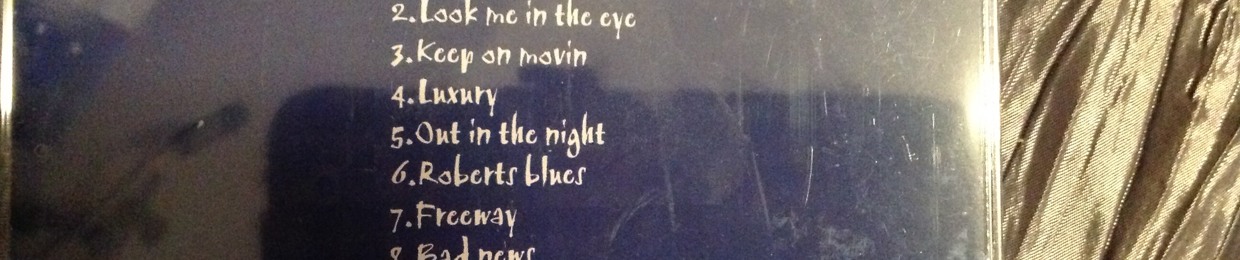 2.Look me in the eye
3.Keep on movin
4.Luxury
5.Out in the night
6.Roberts blues
7.Freeway
8.Bad news